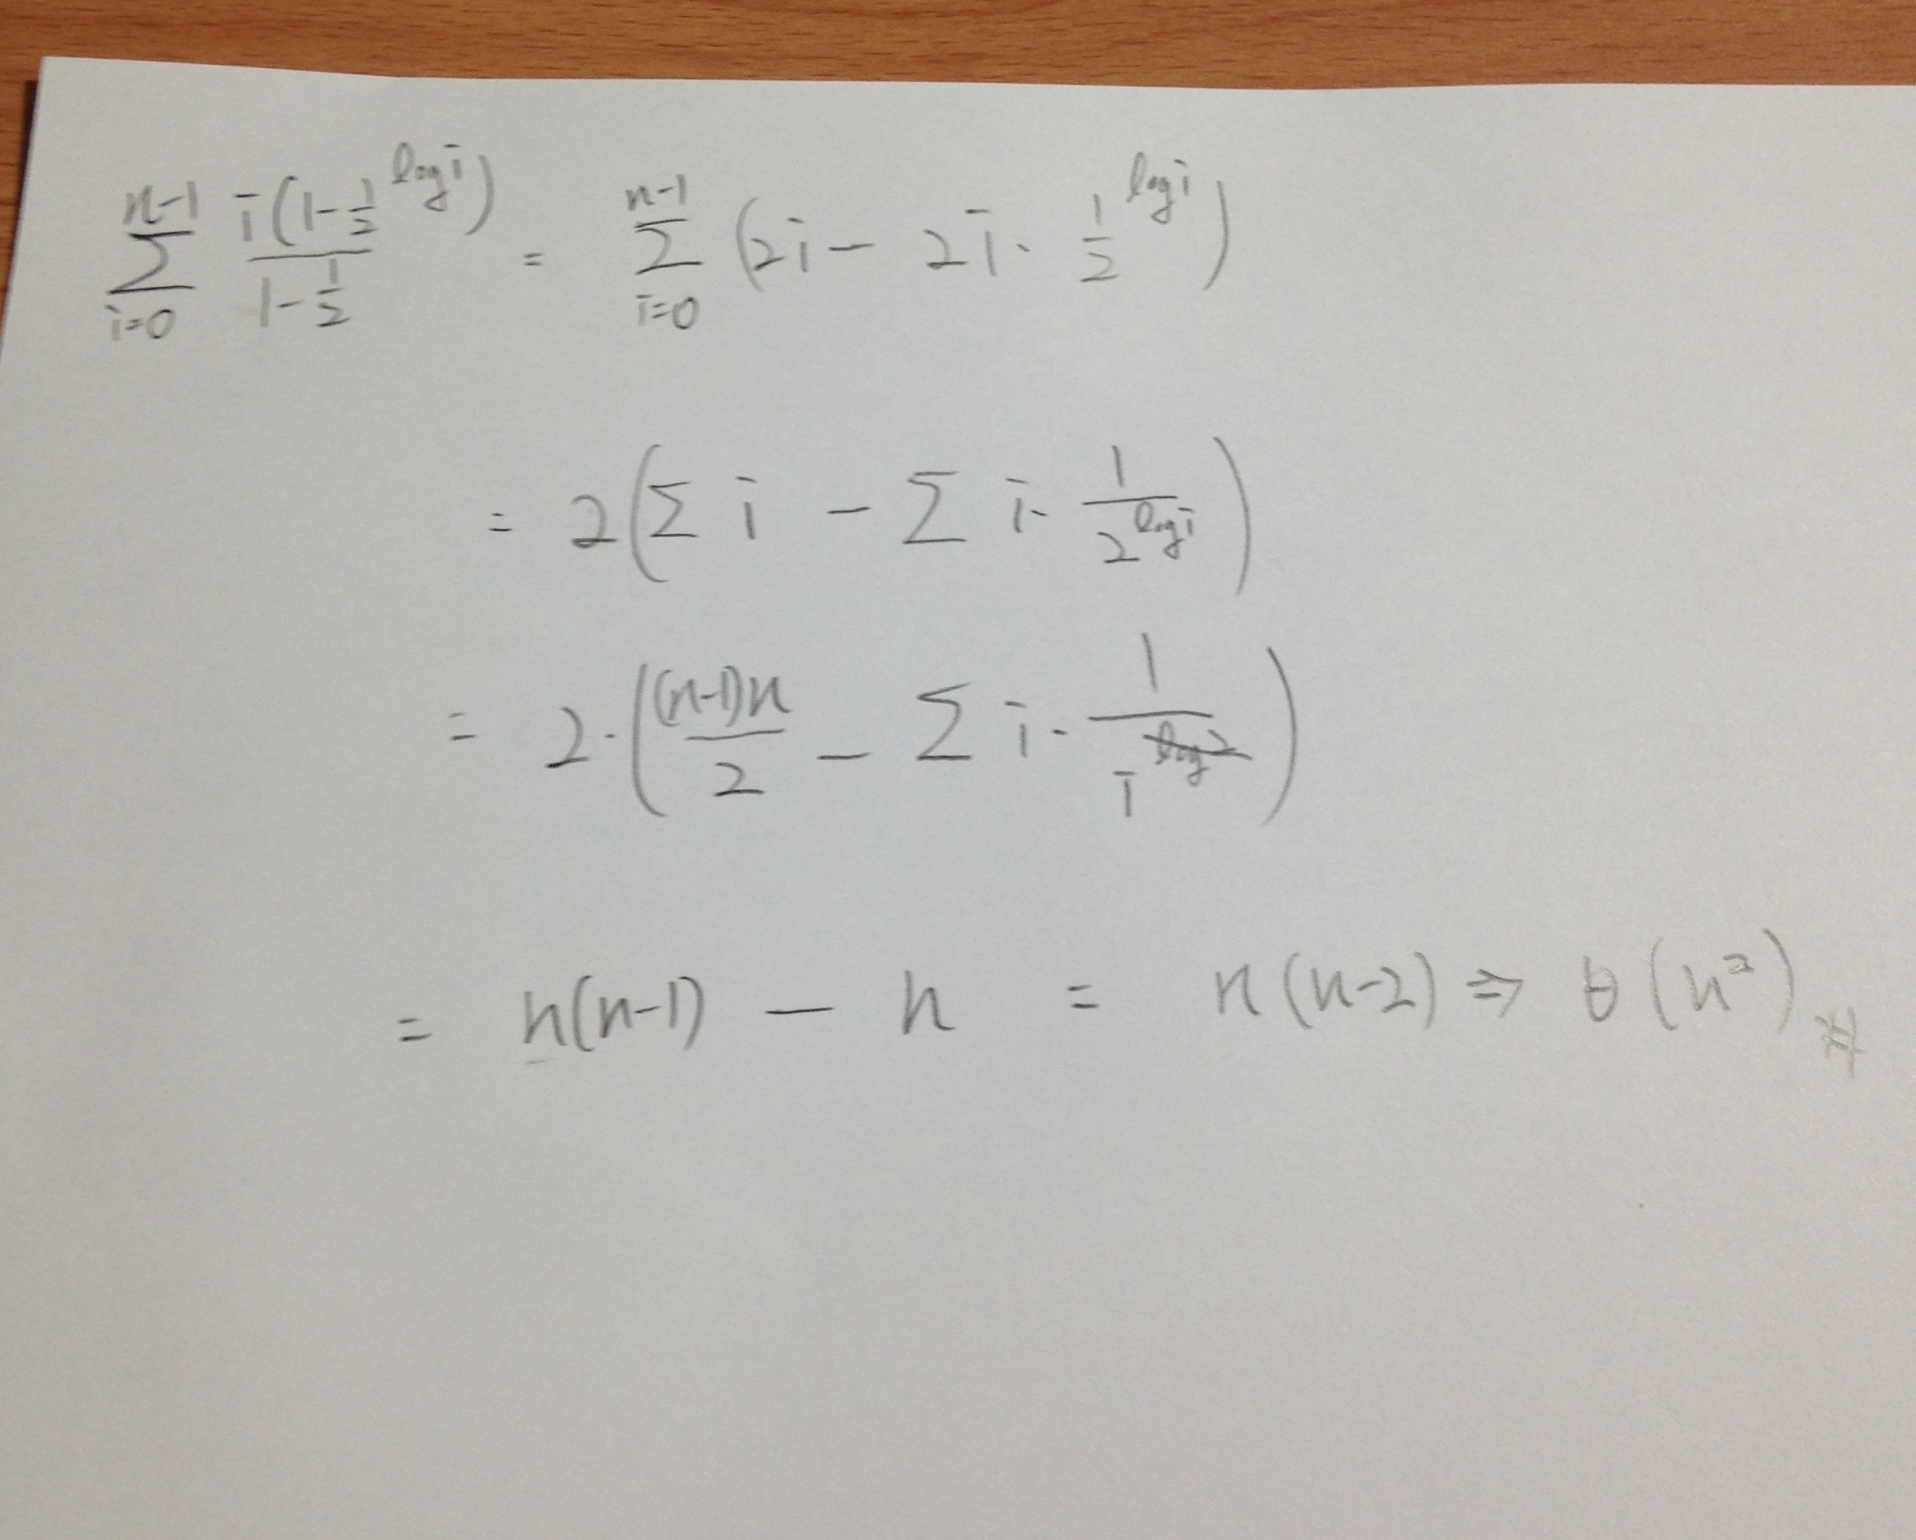 \sum_{i=0}^{n-1} \frac{i(1-\frac{1}{2}^{\log i})}{1-\frac{1}{2}} = \sum_{i=0}^{n-1} (2i - 2i \cdot \frac{1}{2}^{\log i})
= 2(\sum i - \sum i \cdot \frac{1}{2^{\log i}})
= 2 \cdot (\frac{(n-1)n}{2} - \sum i \cdot \frac{1}{i^{\log 2}})
= n(n-1) - n = n(n-2) ⇒ θ(n²) #